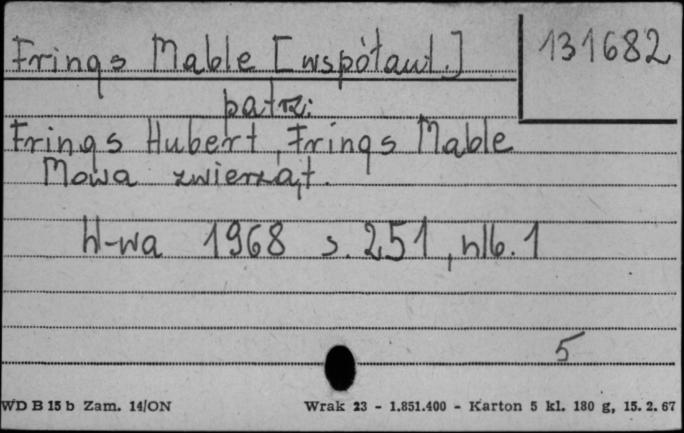 Frings Mable [współaut.]
131682
patrz:
Frings Hubert, Frings Mable
Mowa zwierząt.
W-wa 1968 s. 251, nlb. 1
5
WD B 15 b Zam. 14/ON
Wrak 23 - 1.851.400 - Karton 5 kl. 180 g, 15. 2. 67